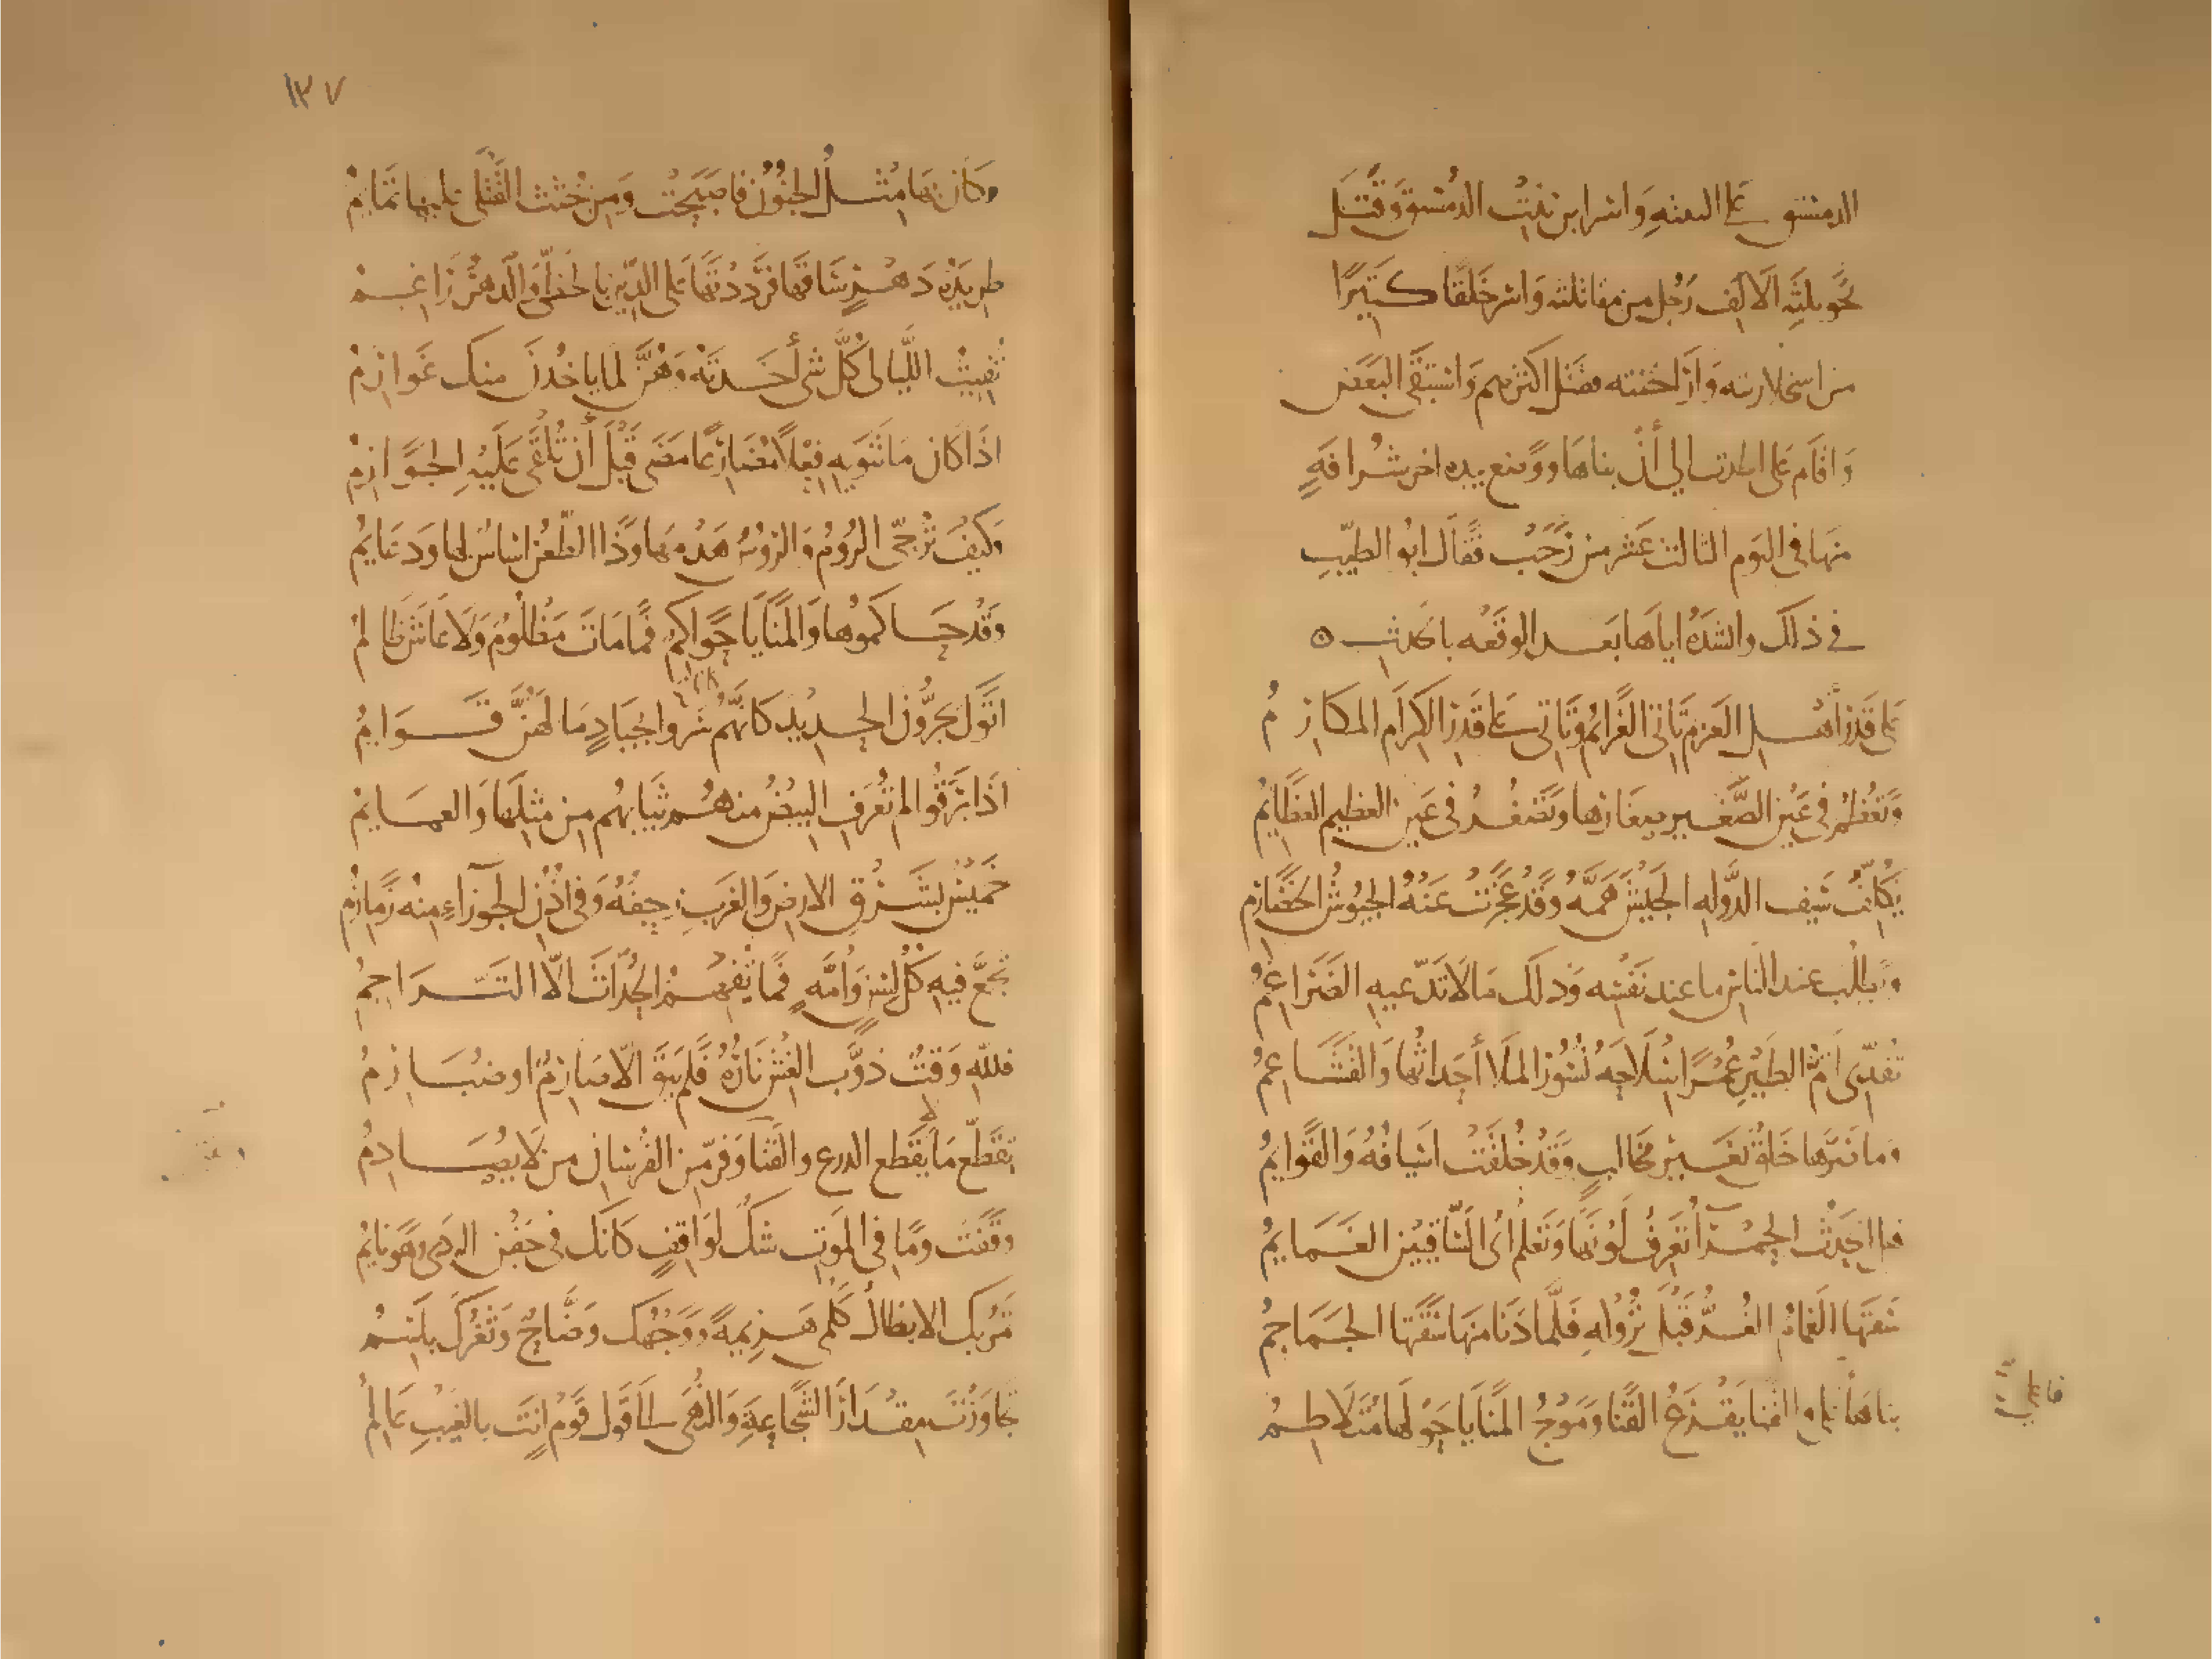 الدمستق على ابنته واسر ابن بنت الدمستق وقتل
نحو ثلثه الالاف رجل من مقاتلته واسر خلقا كثيرا
من اسخلاريته واراخنته فقتل اكثرهم واستبقى البعض
واقام على الحدث الى أن بناها ووضع بيده اخر شرافة
منها فى اليوم الثالث عشر من رجب فقال ابو الطيب
في ذلك وانشده اياها بعد الوقعه بالحدث
على قدر اهل العزم تاتى العزائم وتاتى على قدر الكرام المكارم
وتعظم فى عين الصغير صغارها وتصغر فى عين العظيم العظايم
يكلف سيف الدوله الجيش همه وقد عجزت عنه الجيوش الخضارم
ويطلب عند الناس ما عند نفسه وذلك ما لا تدعيه الضراغم
تفدى اتم الطير عمرا سلاحه نسور الملا أحداثها والقشاعم
وما ضرها خلق بغير مخالب وقد خلقت اسيافه والقوايم
هل الحدث الحمرآ تعرف لونها وتعلم أى الساقيين الغمايم
سقتها الغمام الغر قبل نزوله فلما دنا منها سقتها الجماجم
بناها فاعلى والقنا يقرع القنا وموج المنايا حولها متلاطم
فاعلى
١٣٧
وكان بها مثل الجنون فاصبحت ومن جثث القتلى عليها تمايم
طريدة دهر ساقها فرددتها على الدين بالخطى والدهر راغم
تفيت الليالى كل شى أخذته وهن لما ياخذن منك غوارم
اذا كان ما تنويه فعلا مضارعا مضى قبل أن تلقى عليه الجوازم
وكيف ترجى الروم والروس هدمها وذا الطعن اساس لها ودعايم
وقد حاكموها والمنايا حواكم فما مات مظلوم ولا عاش ظالم
اتوك يجرون الحديد كانهم سروا بجياد ما لهن قوايم
اذا برقوا لم تعرف البيض منهم ثيابهم من مثلها والعمايم
خميس بشرق الارض والغرب زحفه وفى اذن الجوزاء منه زمازم
تجمع فيه كل لسن وامة فما تفهم الحداث الا التراجم
فلله وقت ذوب الغش ناره فلم يبق الا صارم او ضبارم
تقطع ما لا يقطع الدرع والقنا وفر من الفرسان من لا يصادم
وقفت وما فى الموت شك لواقف كانك فى جفن الردى وهو نايم
تمر بك الابطال كلمى هزيمة ووجهك وضاح وثغرك باسم
تجاوزت مقدار الشجاعة والنهى الى قول قوم انت بالغيب عالم